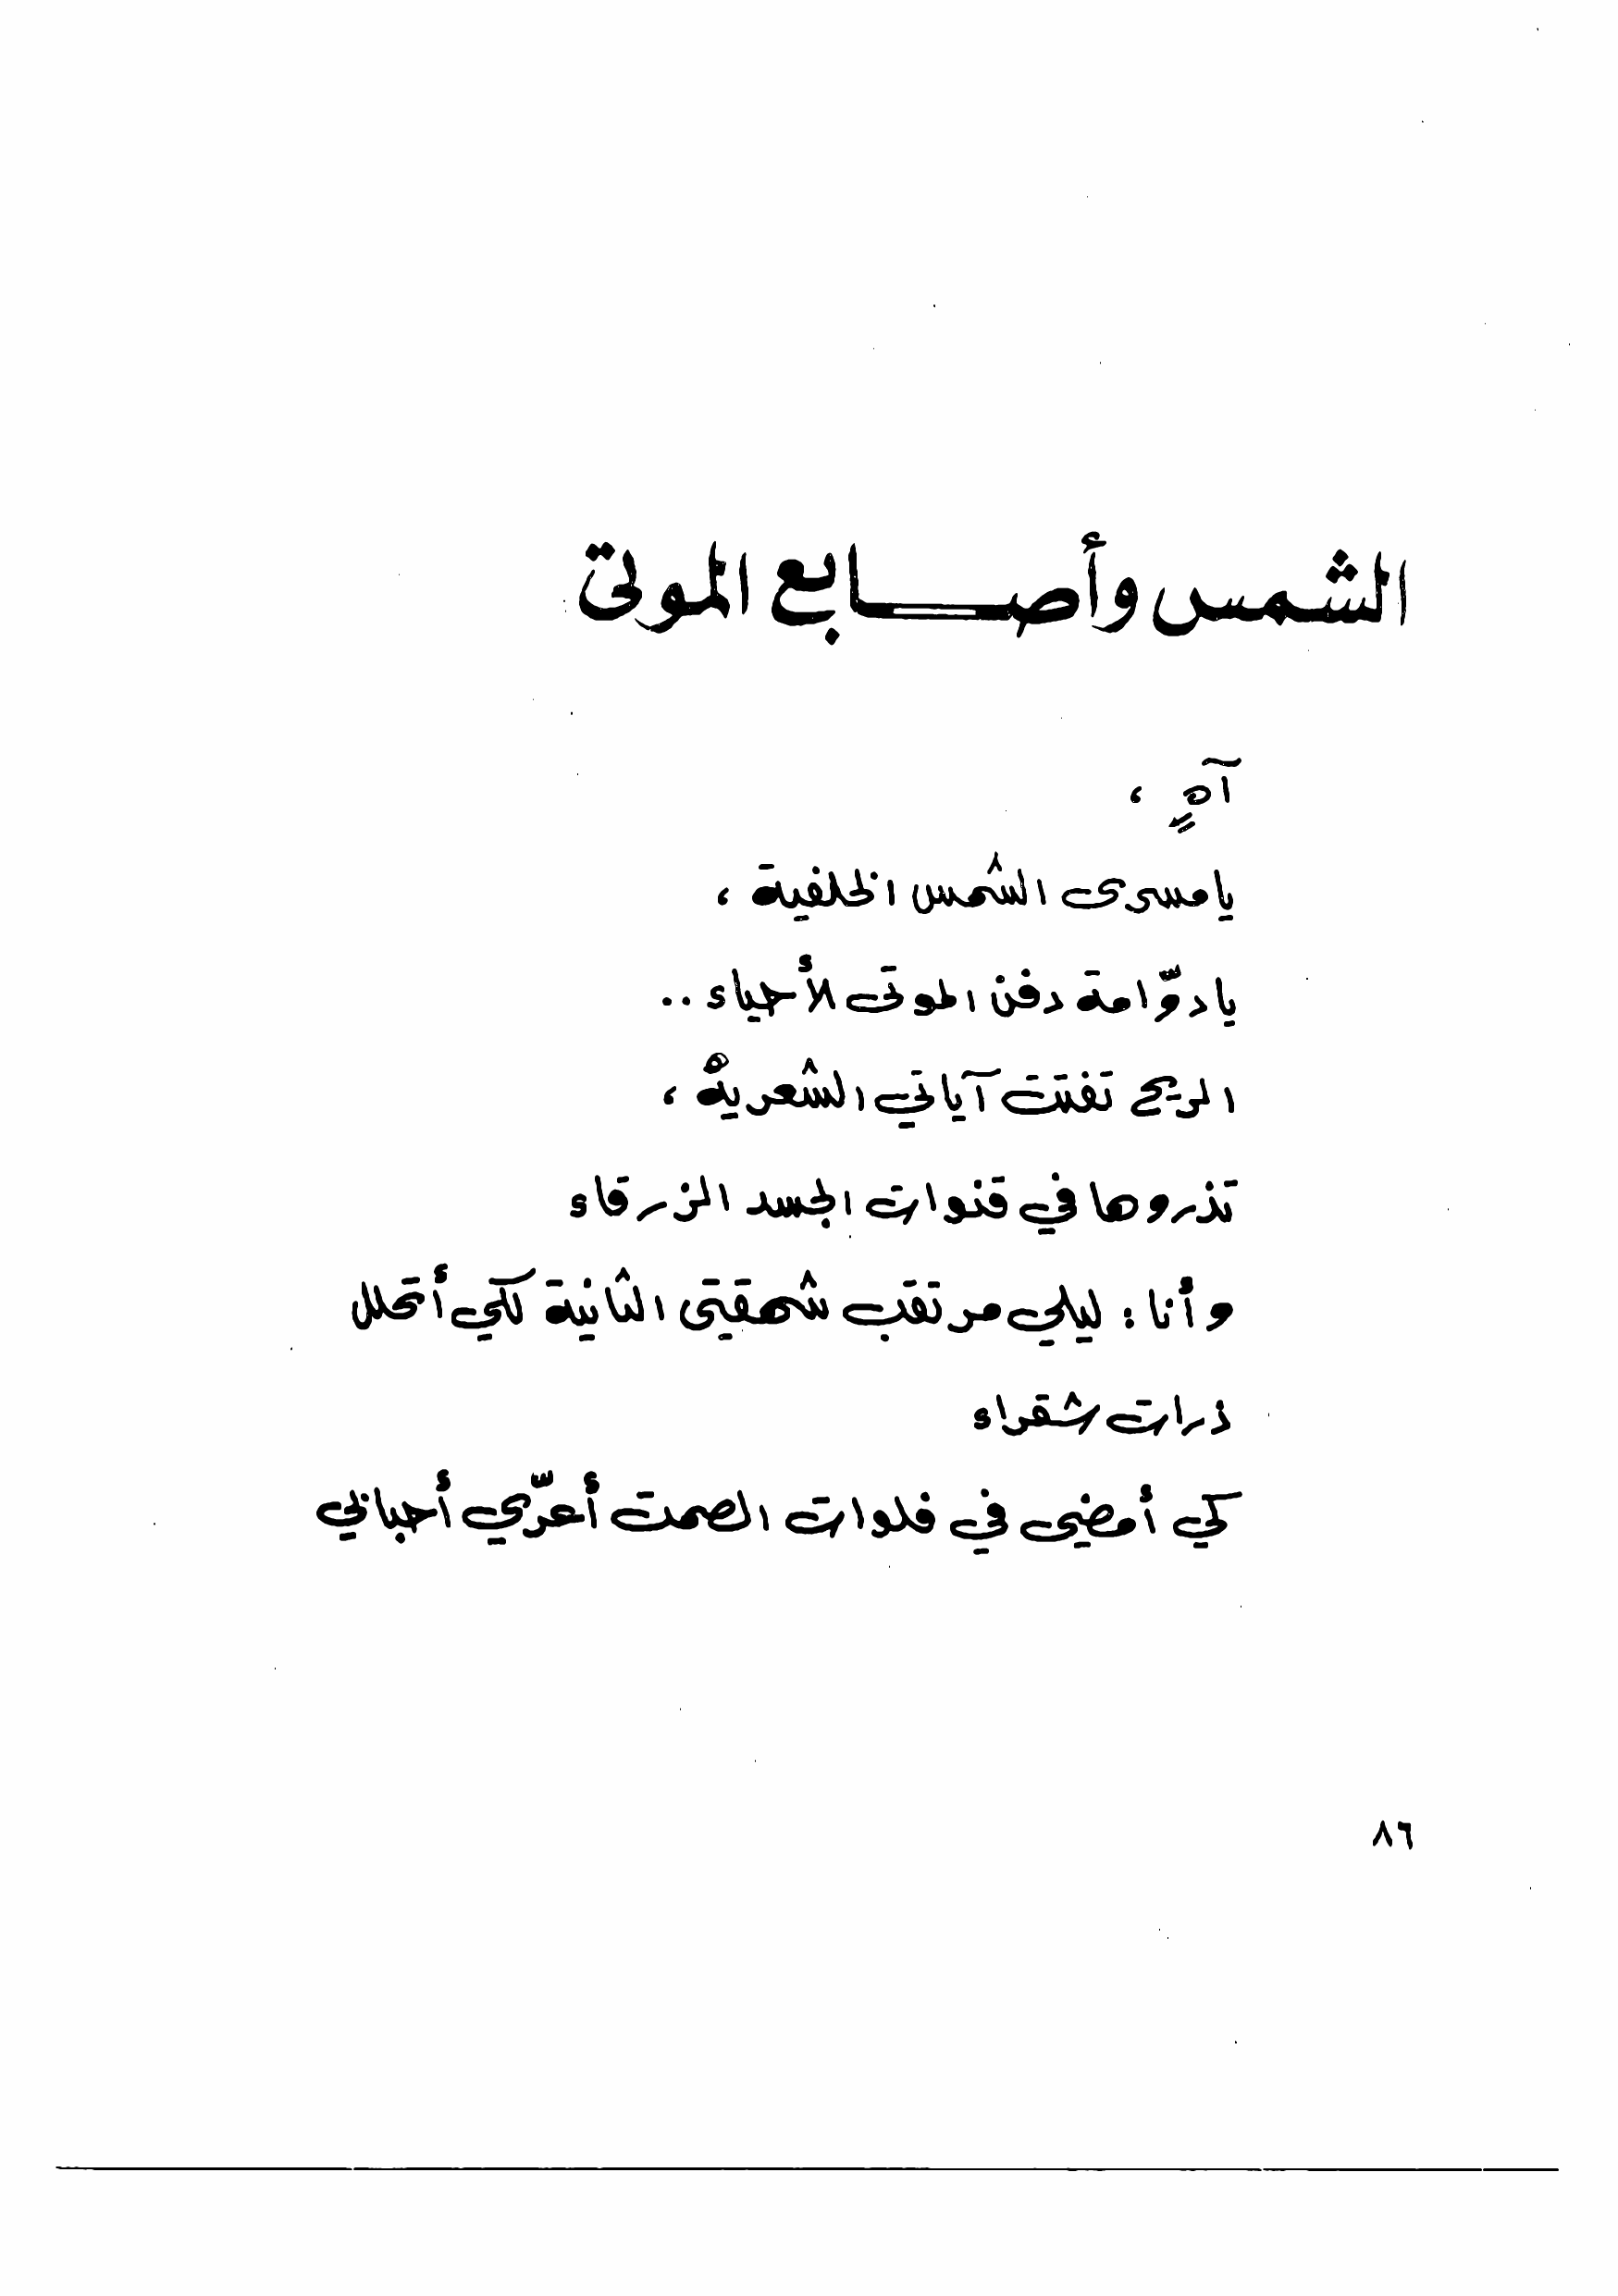 الشمس وأصابع الموتى
آهٍ ،
يا مسرى الشمس الخلفية ،
يا دوّامة دفن الموتى للأحياء ..
الريح تفتت آياتي الشعريةْ ،
تذروها في قنوات الجسد الزرقاء
وأنا : ليلي مرتقب شهقتي الثانية لكي أتحلل
ذرات شقراء
كي أمضي في فلوات الصمت أعرّي أحبابي
٨٦